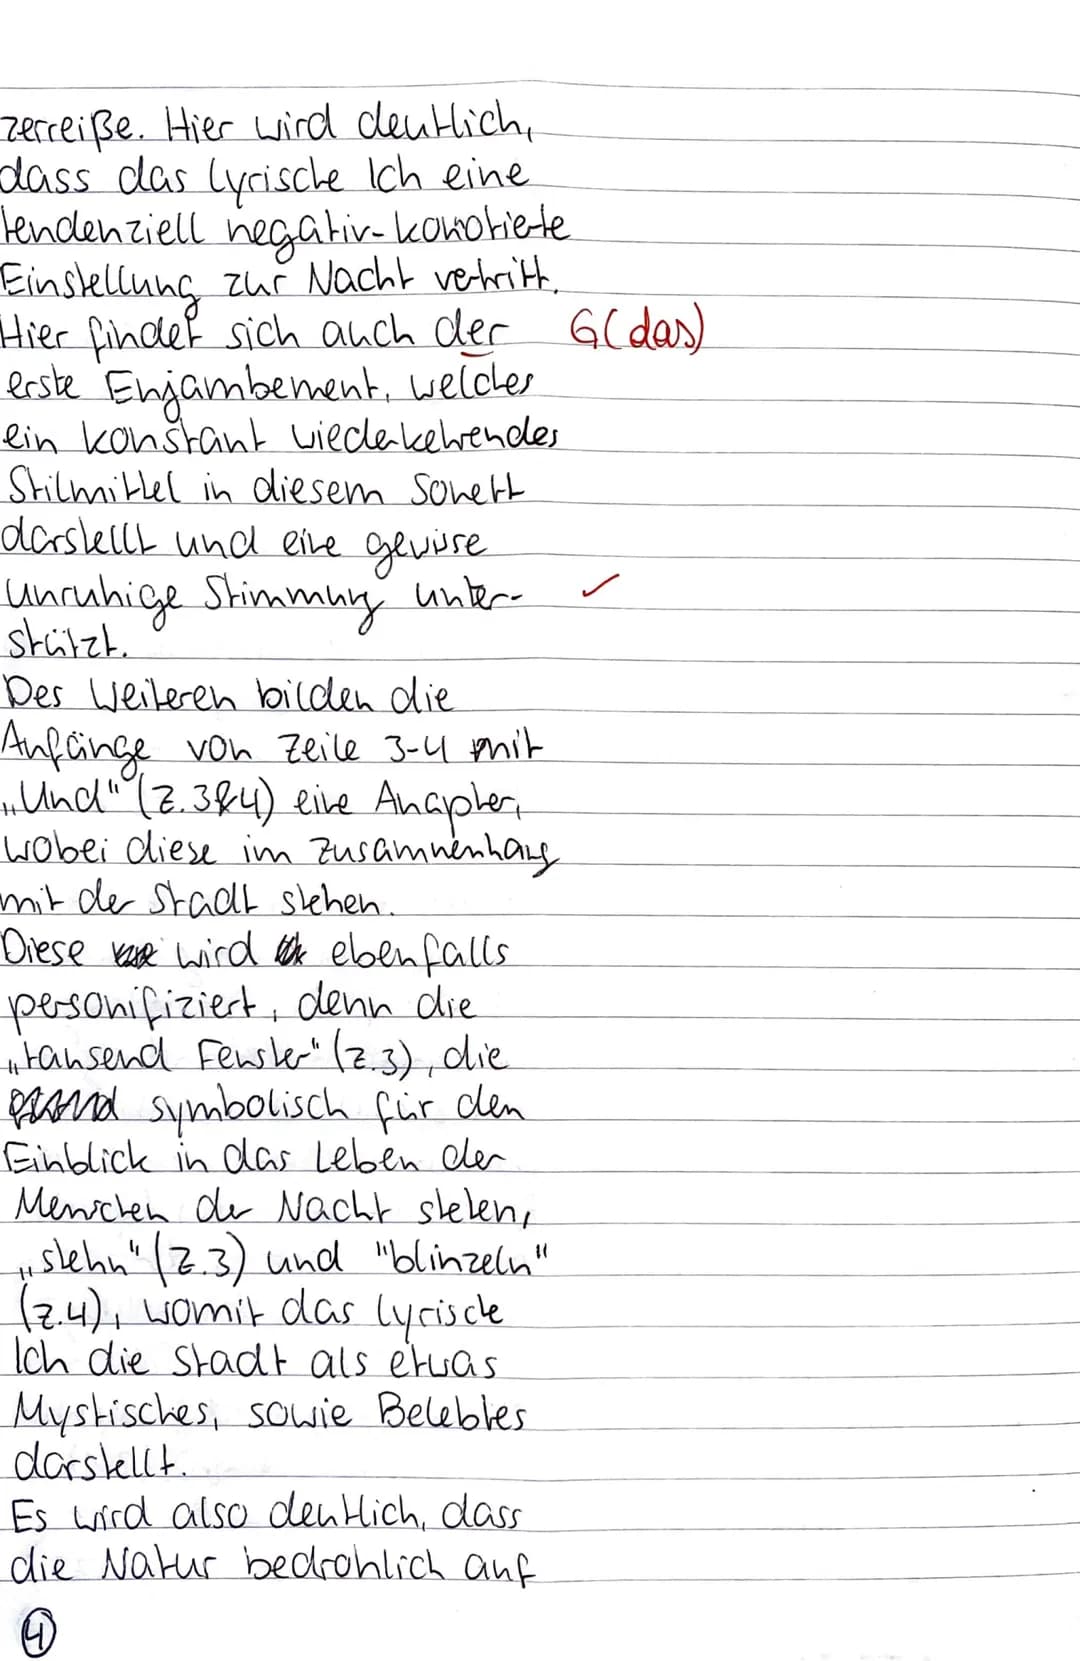 zerreiße. Hier wird deutlich,
dass das lyrische Ich eine
tendenziell negativ-konotierte
Einstellung zur Nacht vertritt.
Hier findet sich auch der G(das)
erste Enjambement, welches
ein konstant wiederkehrendes
Stilmittel in diesem Sonett
darstellt und eine gewisse
unruhige Stimmung unter- ✓
stützt.
Des Weiteren bilden die
Anfänge von Zeile 3-4 mit
„Und" (Z.3&4) eine Anapher,
wobei diese im Zusammenhang
mit der Stadt stehen.
Diese wird ebenfalls
personifiziert, denn die
„tausend Fenster" (Z.3), die
symbolisch für den
Einblick in das Leben der
Menschen der Nacht stehen,
„stehn" (Z.3) und "blinzeln"
(Z.4), womit das lyrische
Ich die Stadt als etwas
Mystisches, sowie Belebtes
darstellt.
Es wird also deutlich, dass
die Natur bedrohlich auf
4